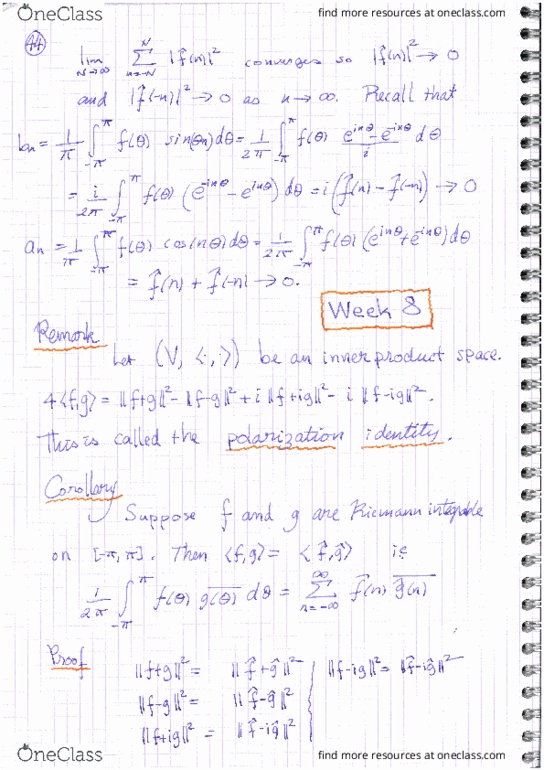 OneClass find more resources at oneclass.com
44
lim_{N→∞} Σ_{n=-N}^{N} |f̂(n)|² converges so |f̂(n)|² → 0
and |f̂(-n)|² → 0 as n → ∞. Recall that
bₙ = 1/π ∫_{-π}^{π} f(θ) sin(θn)dθ = 1/2π ∫_{-π}^{π} f(θ) (e^{inθ} - e^{-inθ})/i dθ
= i/2π ∫_{-π}^{π} f(θ) (e^{-inθ} - e^{inθ}) dθ = i(f̂(n) - f̂(-n)) → 0
aₙ = 1/π ∫_{-π}^{π} f(θ) cos(nθ)dθ = 1/2π ∫_{-π}^{π} f(θ) (e^{inθ} + e^{-inθ})dθ
= f̂(n) + f̂(-n) → 0.
Week 8
Remark
Let (V, ⟨·,·⟩) be an inner product space.
4⟨f,g⟩ = ‖f+g‖² - ‖f-g‖² + i‖f+ig‖² - i‖f-ig‖².
This is called the polarization identity.
Corollary
Suppose f and g are Riemann integrable
on [-π, π]. Then ⟨f,g⟩ = ⟨f̂,ĝ⟩ ie
1/2π ∫_{-π}^{π} f(θ) \overline{g(θ)} dθ = Σ_{n=-∞}^{∞} f̂(n) \overline{ĝ(n)}
Proof
‖f+g‖² = ‖f̂+ĝ‖² ‖f-ig‖² = ‖f̂-iĝ‖²
‖f-g‖² = ‖f̂-ĝ‖²
‖f+ig‖² = ‖f̂-iĝ‖²
OneClass find more resources at oneclass.com